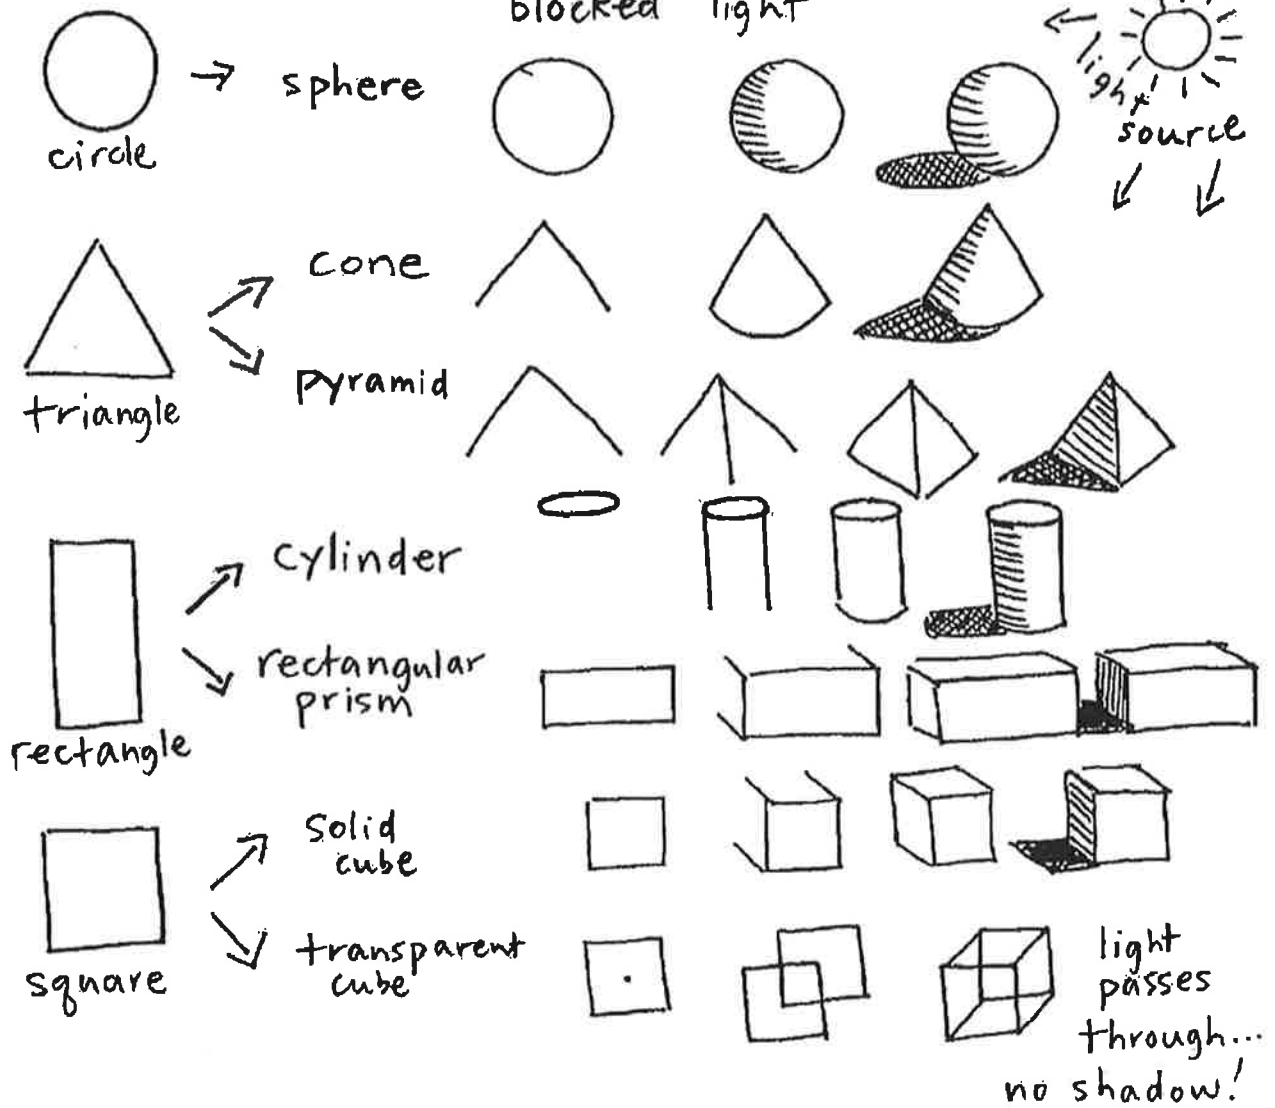 blocked light
light
source
sphere
circle
cone
pyramid
triangle
cylinder
rectangular
prism
rectangle
solid
cube
square
transparent
cube
light
passes
through...
no shadow!